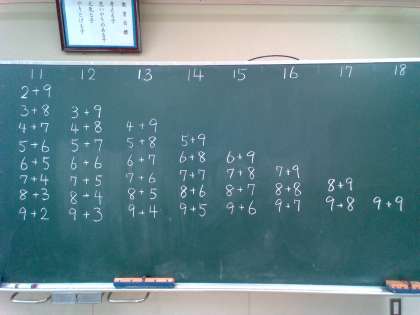 11 12 13 14 15 16 17 18
2+9
3+8 3+9
4+7 4+8 4+9
5+6 5+7 5+8 5+9
6+5 6+6 6+7 6+8 6+9
7+4 7+5 7+6 7+7 7+8 7+9
8+3 8+4 8+5 8+6 8+7 8+8 8+9
9+2 9+3 9+4 9+5 9+6 9+7 9+8 9+9